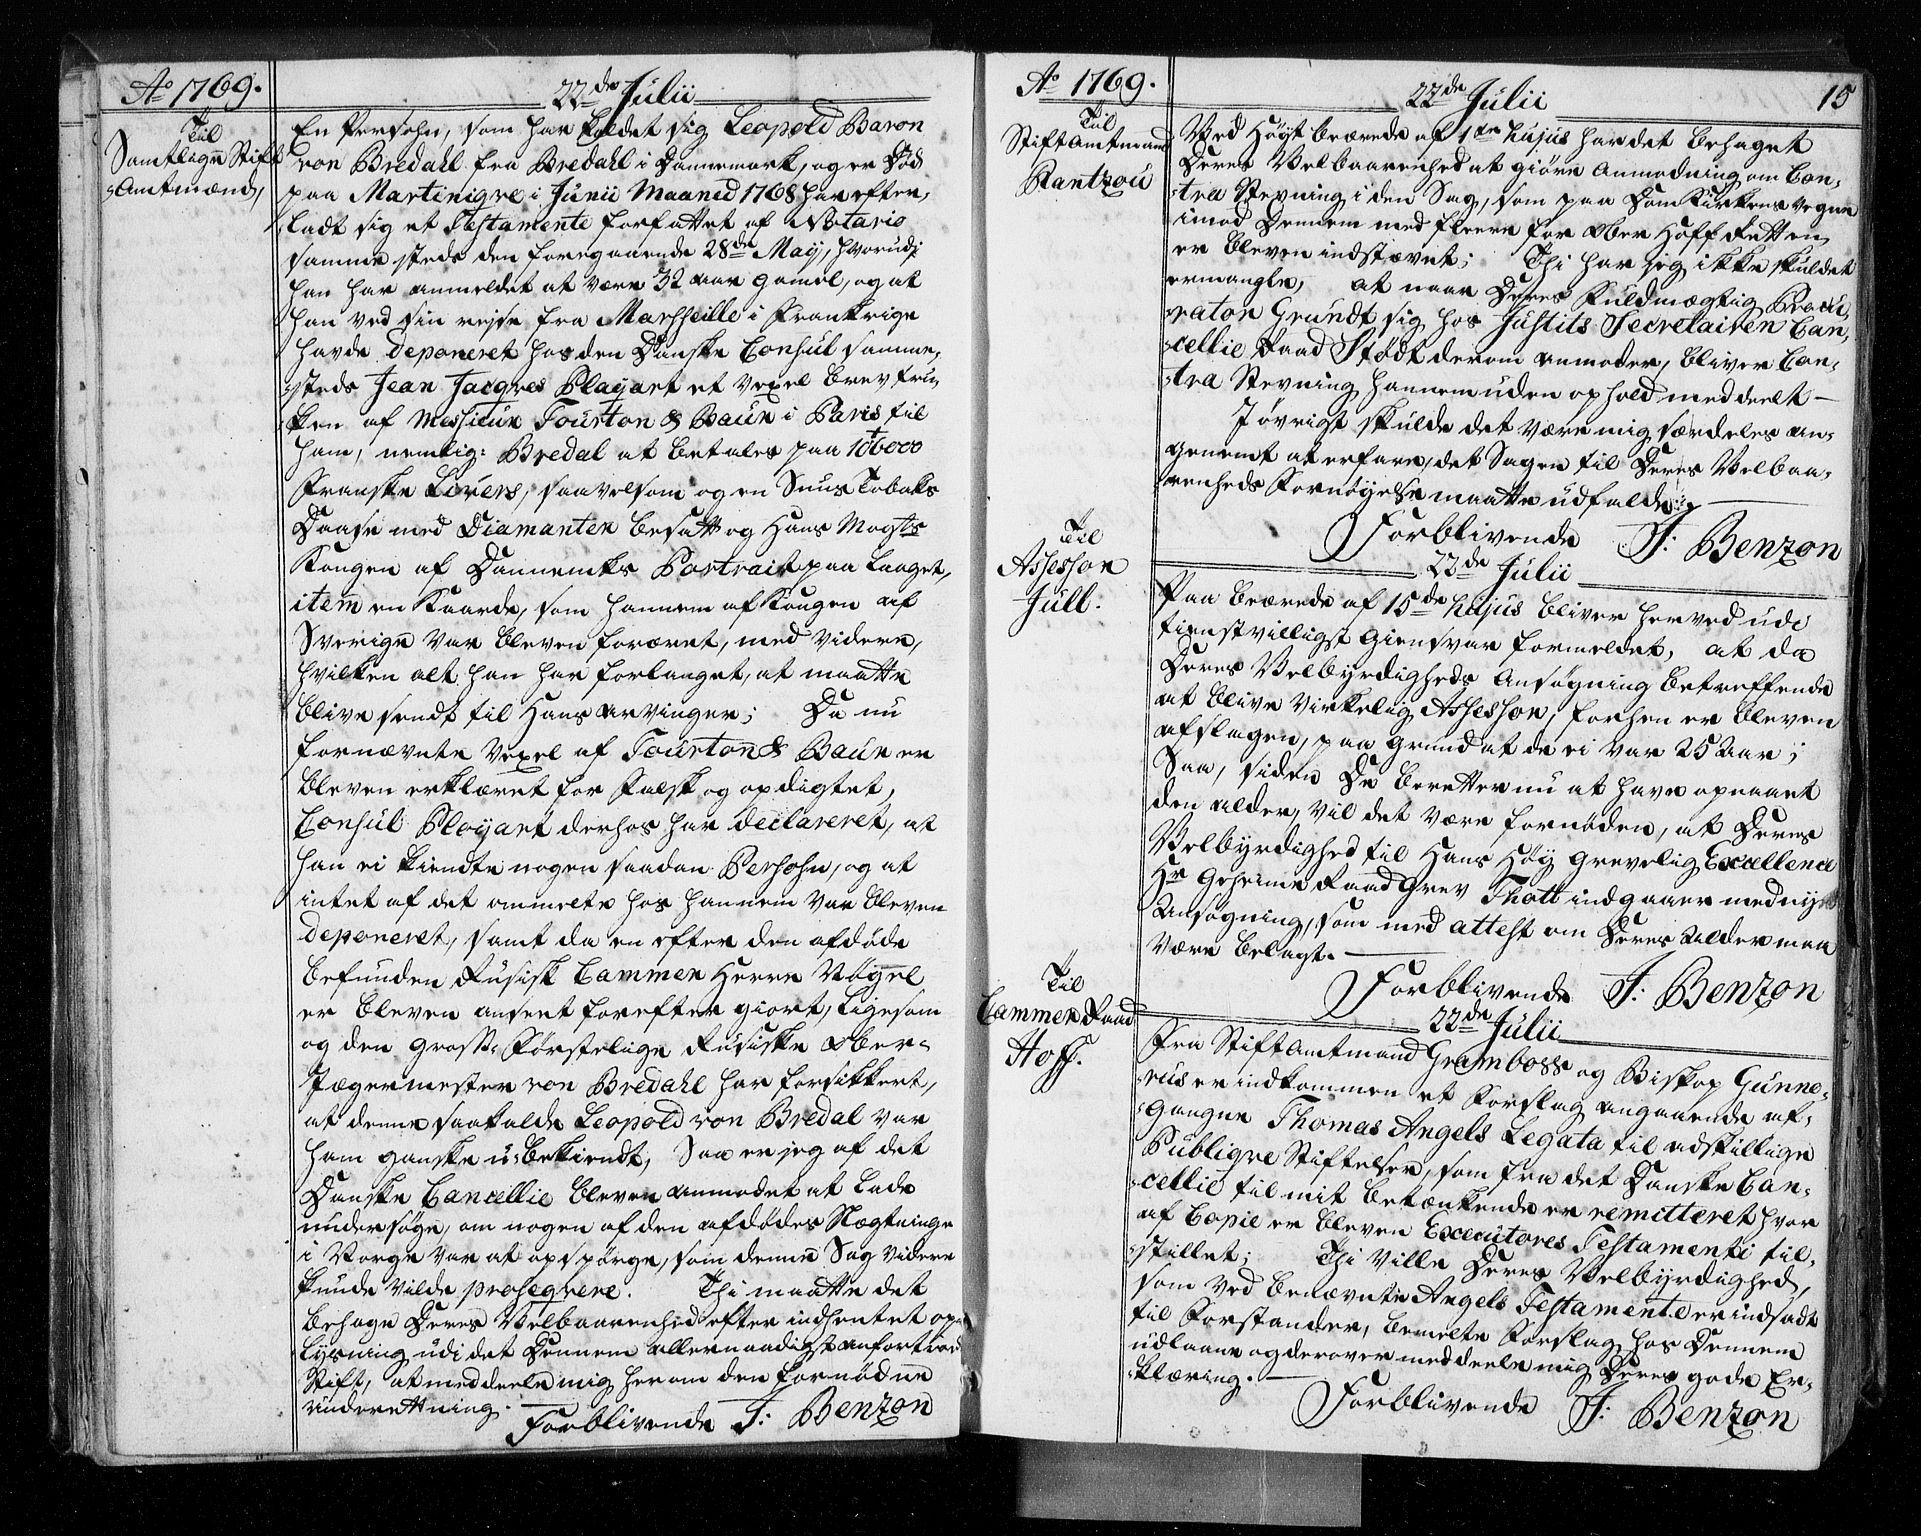 Ao 1769.
22de Julii
Til
Samtlige Stift
Amtmænd,
En Persohn, som har kaldet sig Leopold Baron
von Bredahl fra Bredahl i Dannemark, og er Død
paa Martinique i Junii Maaned 1768 har efter-
:ladt sig et Testamente forfattet af Notario
sammesteds den foregaaende 28de May, hvorudj
han har anmeldet at være 32 Aar gamel, og at
han ved sin rejse fra Marsseille i Frankrige
havde deponeret hos den Danske Consul samme-
:steds Jean Jacques Playart et Vexel brev truk-
:ken af Messieur Tourton & Baur i Paris til
ham, nemlig: Bredal at betales paa 106000
Franske Livers, saavelsom og en Snus Tobaks
Daase med Diamanter besatt og Hans Mayts
Kongen af Dannemks Portrait paa Laaget,
item en Kaarde, som hannem af Kongen af
Sverige var bleven foræret, med videre,
hvilken alt han har forlanget, at maatte
blive sendt til Hans Arvinger; Da nu
fornævnte Vexel af Tourton & Baur er
bleven erklæret for Falsk og opdigtet,
Consul Ployart derhos har declareret, at
han ei kiendte nogen saadan Persohn, og at
intet af det ommelte hos hannem var bleven
deponeret, samt da en efter den afdøde
befunden Rusisk Cammer Herre Nøgel
er bleven anseet for eftergiort, ligesom
og den Gross-Førstelige Rusiske Ober-
Jægermester von Bredahl har forsikkert,
at denne saakalde Leopold von Bredal var
ham ganske u-bekiendt, Saa er jeg af det
Danske Cancellie bleven anmodet at lade
undersøge, om nogen af den afdødes Slægtninge
i Norge var at opspørge, som denne Sag videre
kunde vilde proseqvere. Thi maatte det
behage Deres Velbaarenhed efter indhentet op-
:lysning udi det Dennem allernaadigst anfortroede
Stift, at meddeele mig herom den fornødne
underrettning.
Forblivende J: Benzon
Ao 1769.
22de Julii
15
Til
StiftAmtmand
Rantzou
Ved Høyt beærede af 1ste hujus har det behaget
Deres Velbaarenhed at giøre Anmodning om Con-
:tra Stevning i den Sag, som paa Dom Kirkens vegne
imod Dennem med fleere for Ober Hoff Retten
er bleven indstævnet; Thi har jeg ikke skuldet
ermangle, at naar Deres Fuldmægtig Procu-
:rator Grundt sig hos Justits-Secretairen Can-
:cellie Raad Stødt derom anmoder, bliver Con-
:tra Stevning hannem uden ophold meddeelt –
I øvrigt skulde det være mig særdeles an-
genemt at erfare, det Sagen til Deres Velbaa-
renheds Fornøyelse maatte udfalde.
Forblivende J: Benzon
Til
Assessor
Jull.
22de Julii
Paa beærede af 15de hujus bliver herved udi
tienstvilligst Giensvar formeldet, at da
Deres Velbyrdigheds Ansøgning betreffende
at blive virkelig Assessor, forhen er bleven
afslagen, paa grund at de ei var 25 Aar;
Saa, siden De beretter nu at have opnaaet
den alder, vil det være fornøden, at Deres
Velbyrdighed til Hans Høy Grevelig Excellence
Hr Geheime Raad Grev Thott indgaaer med nye
Ansøgning, som med attest om Deres Alder maa
være belagt.
Forblivende J: Benzon
Til
CammerRaad
Hoff.
22de Julii
Fra StiftAmtmand Gramboss og Biskop Gunne-
:rus er indkommen et Forslag angaaende af-
:gangne Thomas Angels Legata til adskillige
Publiqve Stiftelser, som fra det Danske Can-
:cellie til mit betænkende er remitteret hvor
af Copie er bleven Executores Testamenti til-
:stillet; Thi ville Deres Velbyrdighed,
som ved benævnte Angels Testamente er indsadt
til Forstander, bemelte Forslag hos Dennem
udlaane og derover meddeele mig Deres gode Er-
:klæring.
Forblivende J: Benzon